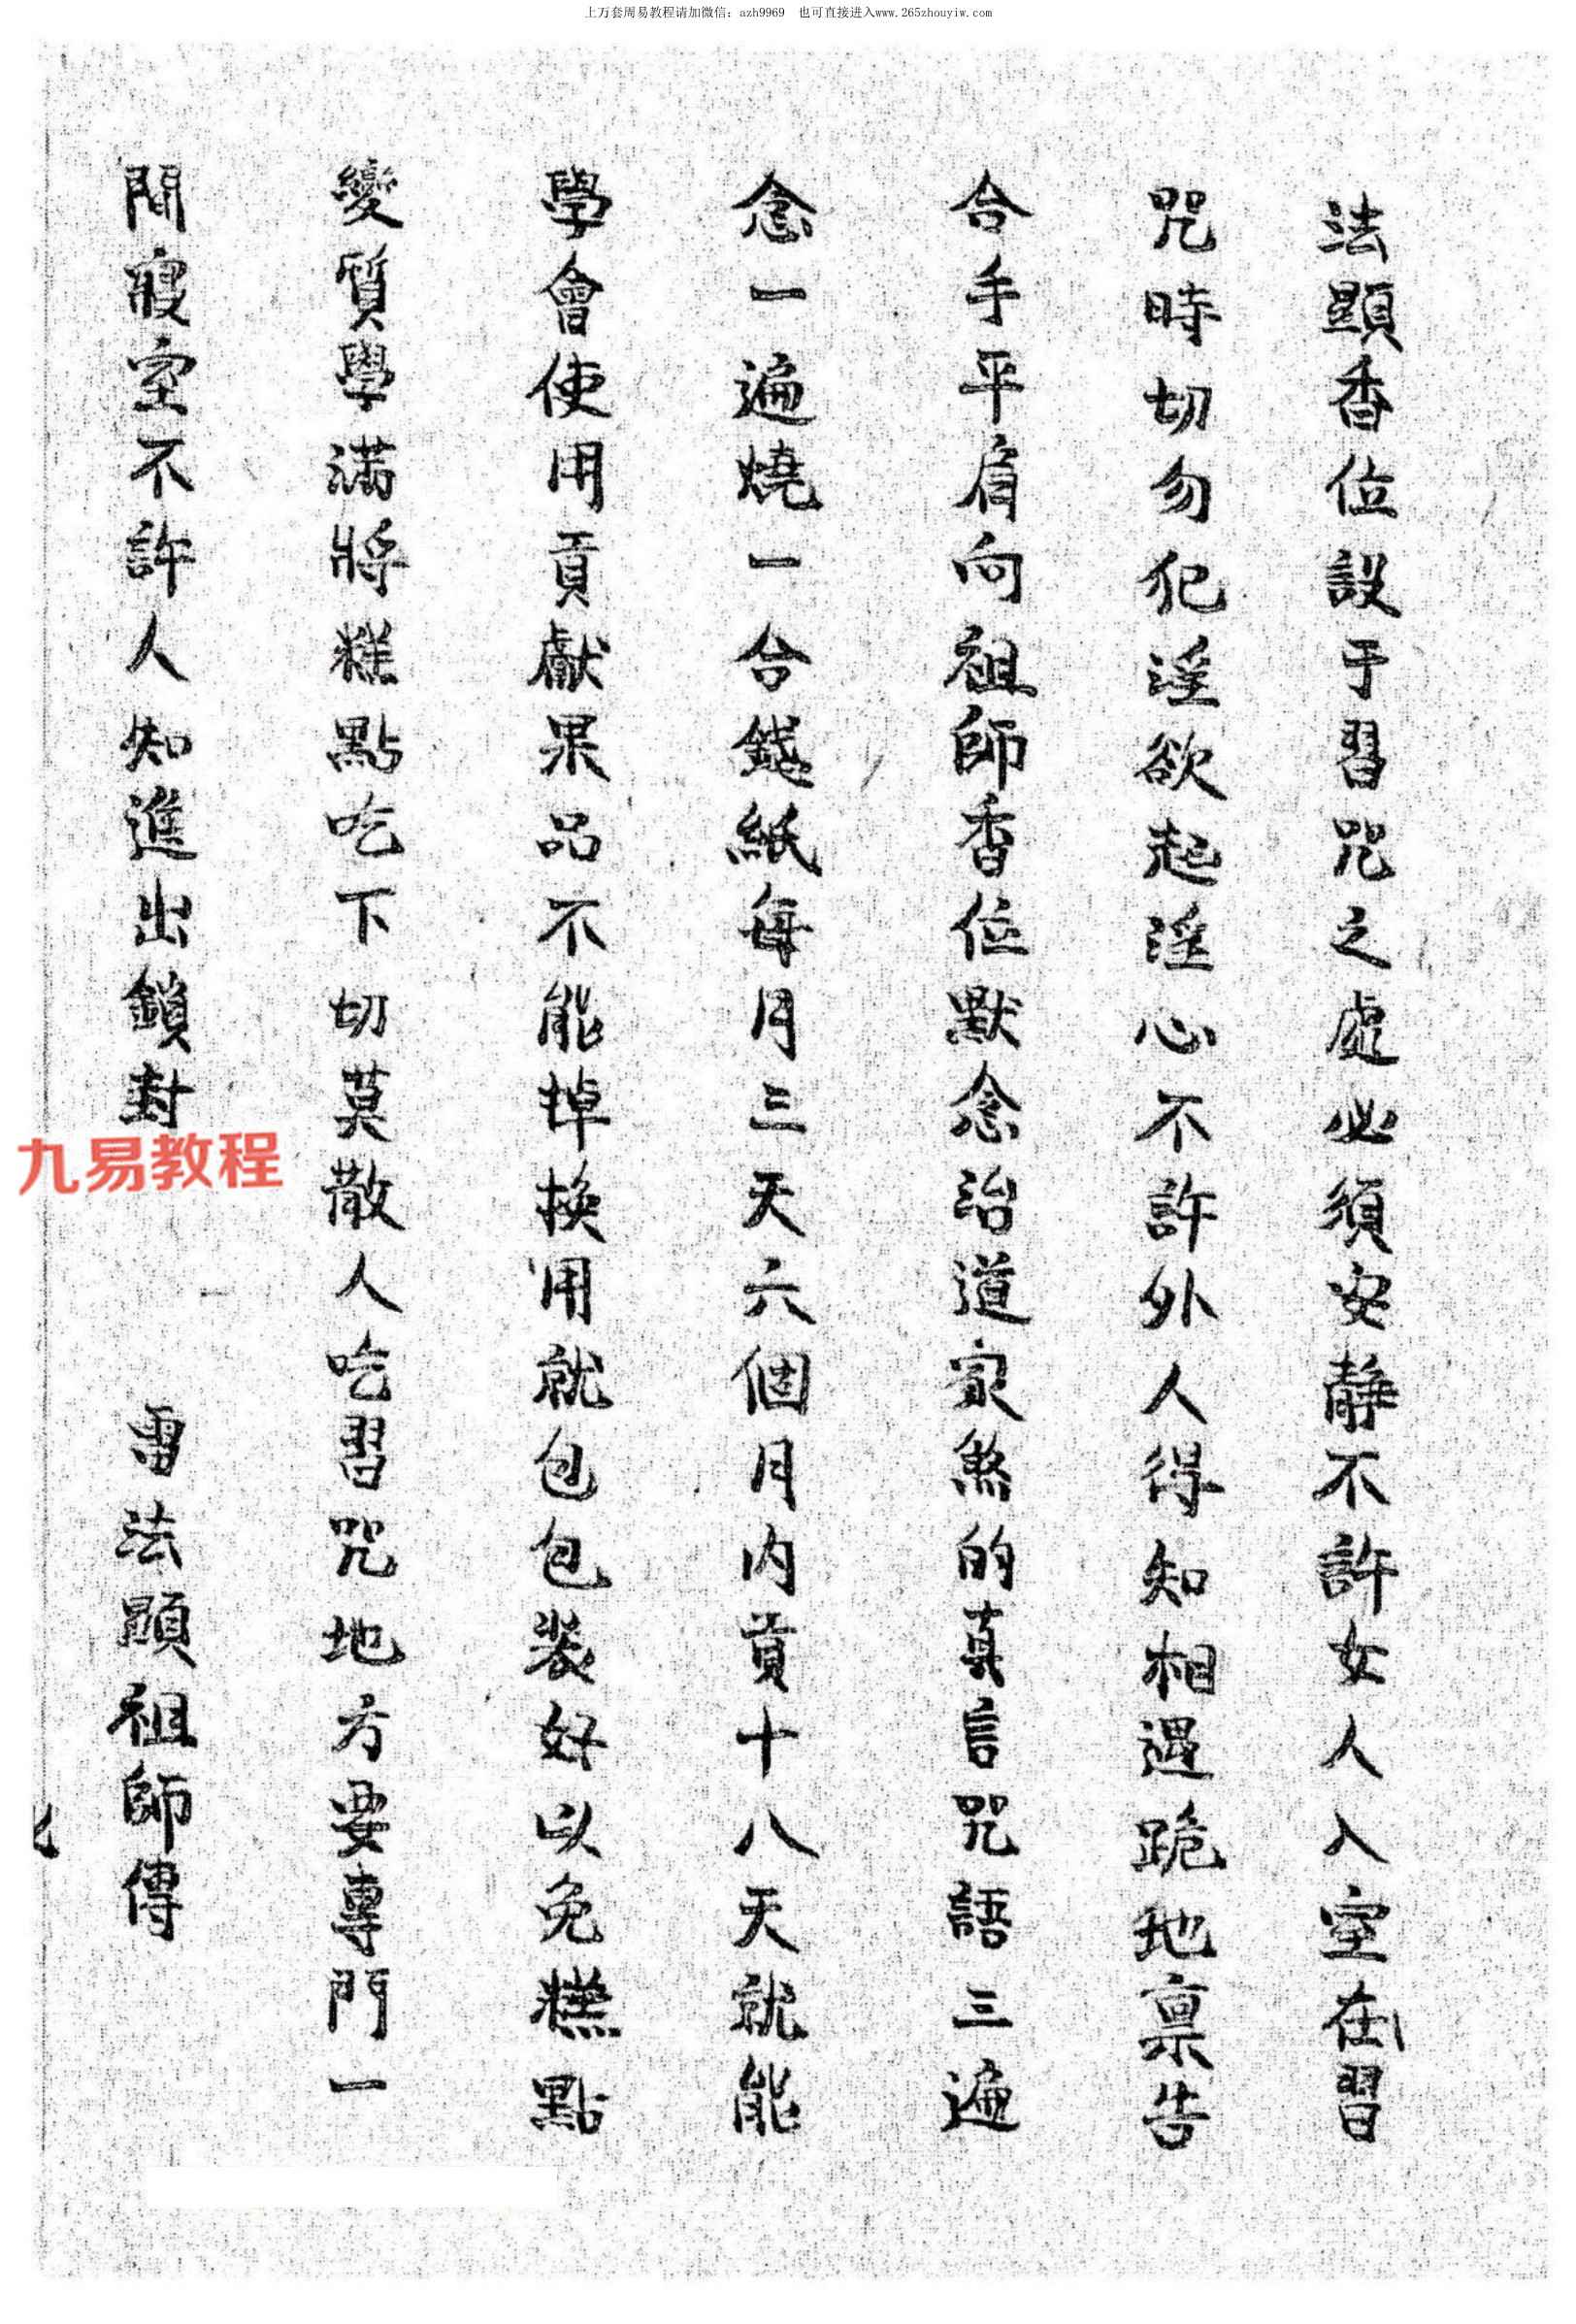 上万套周易教程请加微信：azh9969　也可直接进入www.265zhouyiw.com
法顯香位設于習咒之處必須安靜不許女人入室在習
咒時切勿犯淫欲起淫心不許外人得知相遇跪地禀告
合手平肩向祖師香位默念治道家煞的真言咒語三遍
念一遍燒一合錢紙每月三天六個月内貢十八天就能
學會使用貢獻果品不能掉换用就包包装好以免糕點
變質學滿將糕點吃下切莫散人吃習咒地方要專門一
間寢室不許人知進出鎖封
雷法顯祖師傳
九易教程